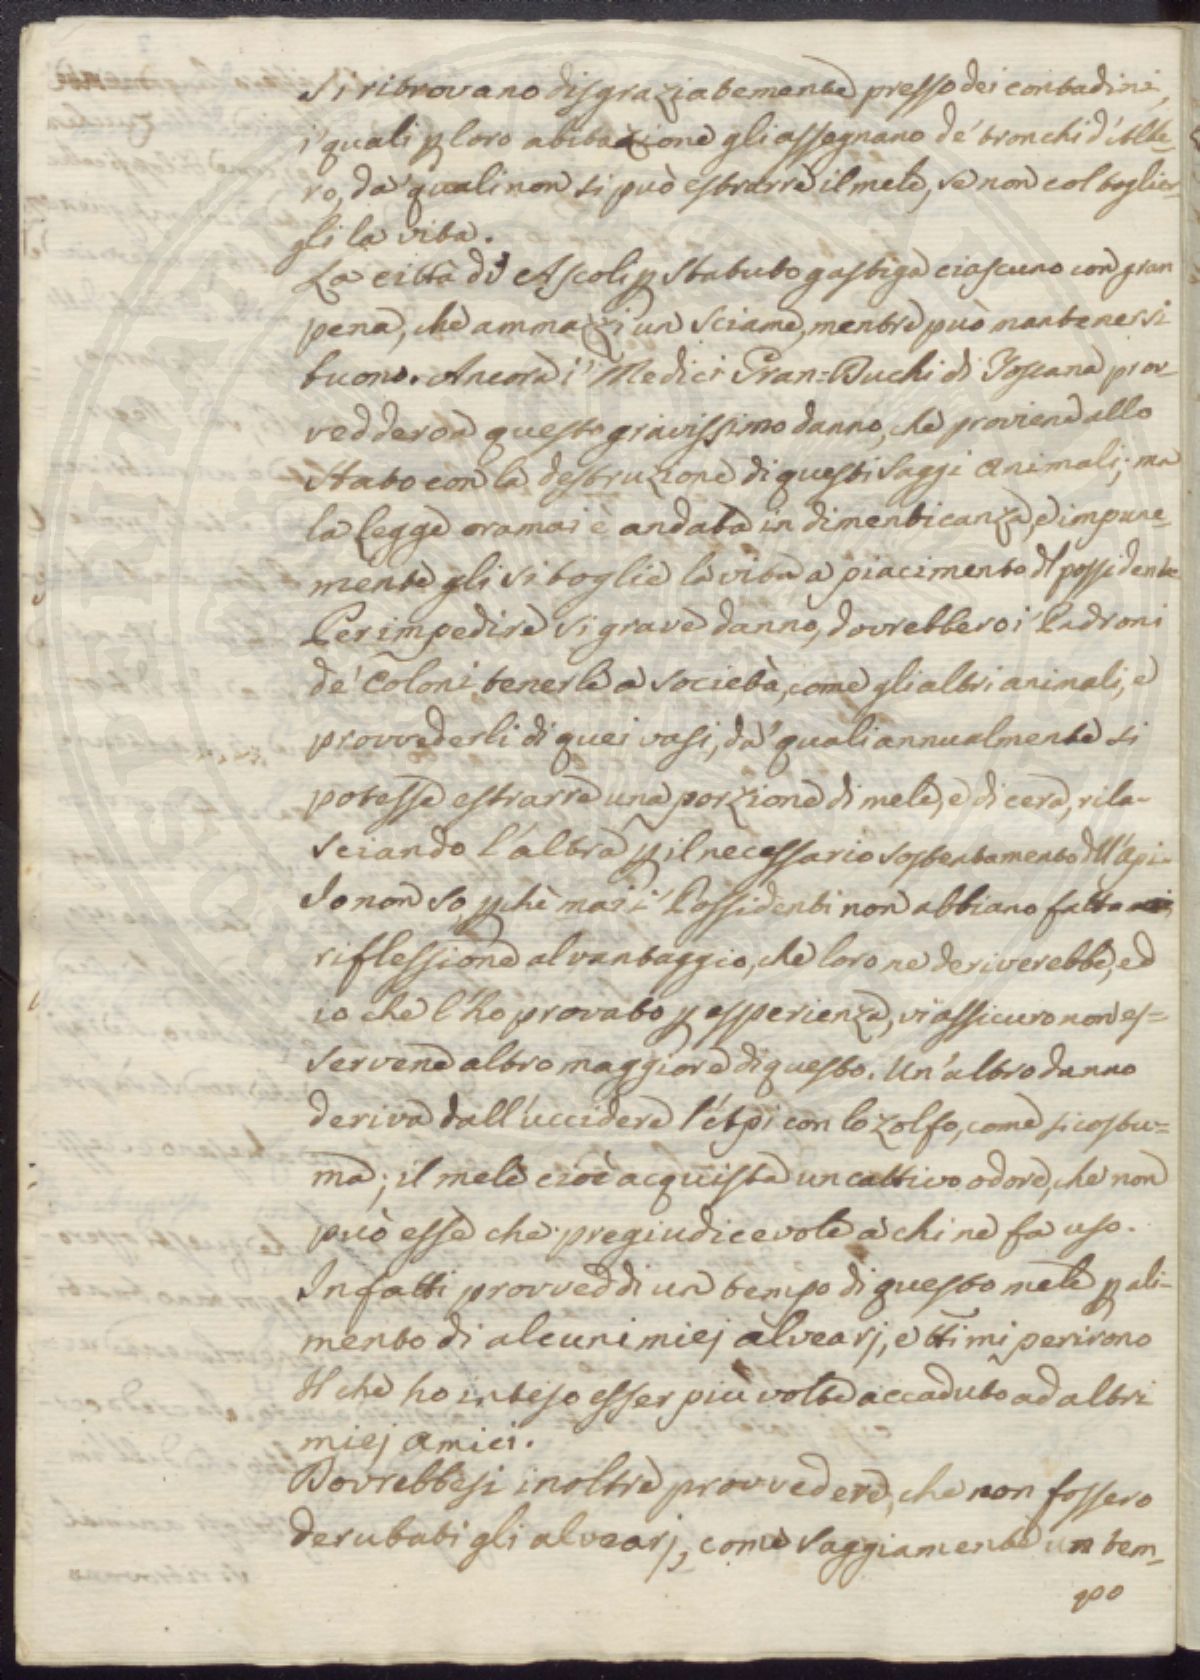 si ritrovano disgraziatemente presso dei contadini,
i' quali p loro abitazione gli assegnano de' tronchi d'Albe-
ro, da' quali non si può estrarre il mele, se non col toglier-
gli la vita.
La città di Ascoli p Statuto gastiga ciascuno con gran
pena, che ammazzi un sciame, mentre può mantenersi
buono. Ancora i' Medici Gran=Duchi di Toscana prov-
vedderoa questo gravissimo danno, che proviene allo
Stato con la destruzione di questi saggi animali; ma
la legge oramai è andata in dimenticanza, e impune-
mente gli si toglie la vita a piacimento dl possidente
Per impedire si grave danno, dovrebbero i' Padroni
de' Coloni tenerle a società, come gli altri animali, e
provvederli di quei vasi, da' quali annualmente si
potesse estrarre una porzione di mele, e di cera, rila-
sciando l'altra p il necessario sostentamento dll'Api.
Io non so, pchè mai i' Possidenti non abbiano fatta
riflessione al vantaggio, che loro ne deriverebbe, ed
io che l'ho provato p esperienza, vi assicuro non es=
servene altro maggiore di questo. Un'altro danno
deriva dall'uccidere l'Api con lo zolfo, come si costu=
ma; il mele cioè acquista un cattivo odore, che non
può esse che pregiudicevole a chi ne fa uso.
Infatti provveddi un tempo di questo mele p ali-
mento di alcuni miej alvearj, e tti mi perirono
Il che ho inteso esser più volte accaduto ad altri
miej amici.
Dovrebbesi inoltre provvedere, che non fossero
derubati gli alvearj, come saggiamente un tem-
po